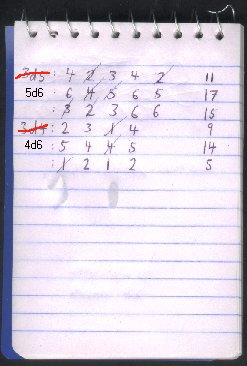 3d5 : 4 2 3 4 2 11
5d6 : 6 4 5 6 5 17
: 3 2 3 6 6 15
3d4 : 2 3 1 4 9
4d6 : 5 4 4 5 14
: 1 2 1 2 5